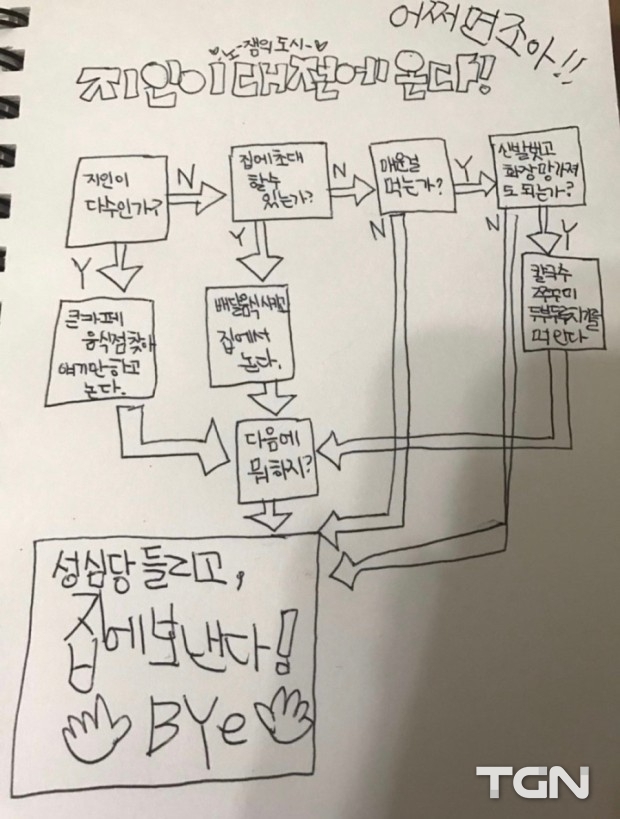 어쩌면조아!!
♥노-잼의 도시-♥
지인이 대전에 온다!
지인이
다수인가?
N
집에초대
할수
있는가?
N
매운걸
먹는가?
Y
신발벗고
화장 망가져
도 되는가?
Y
Y
N
N
Y
큰카페
음식점찾아
얘기만하고
논다.
배달음식시키고
집에서
논다.
칼국수
쭈꾸미
두부두루치기를
먹인다
다음에
뭐하지?
성심당 들리고,
집에보낸다!
BYe
TGN